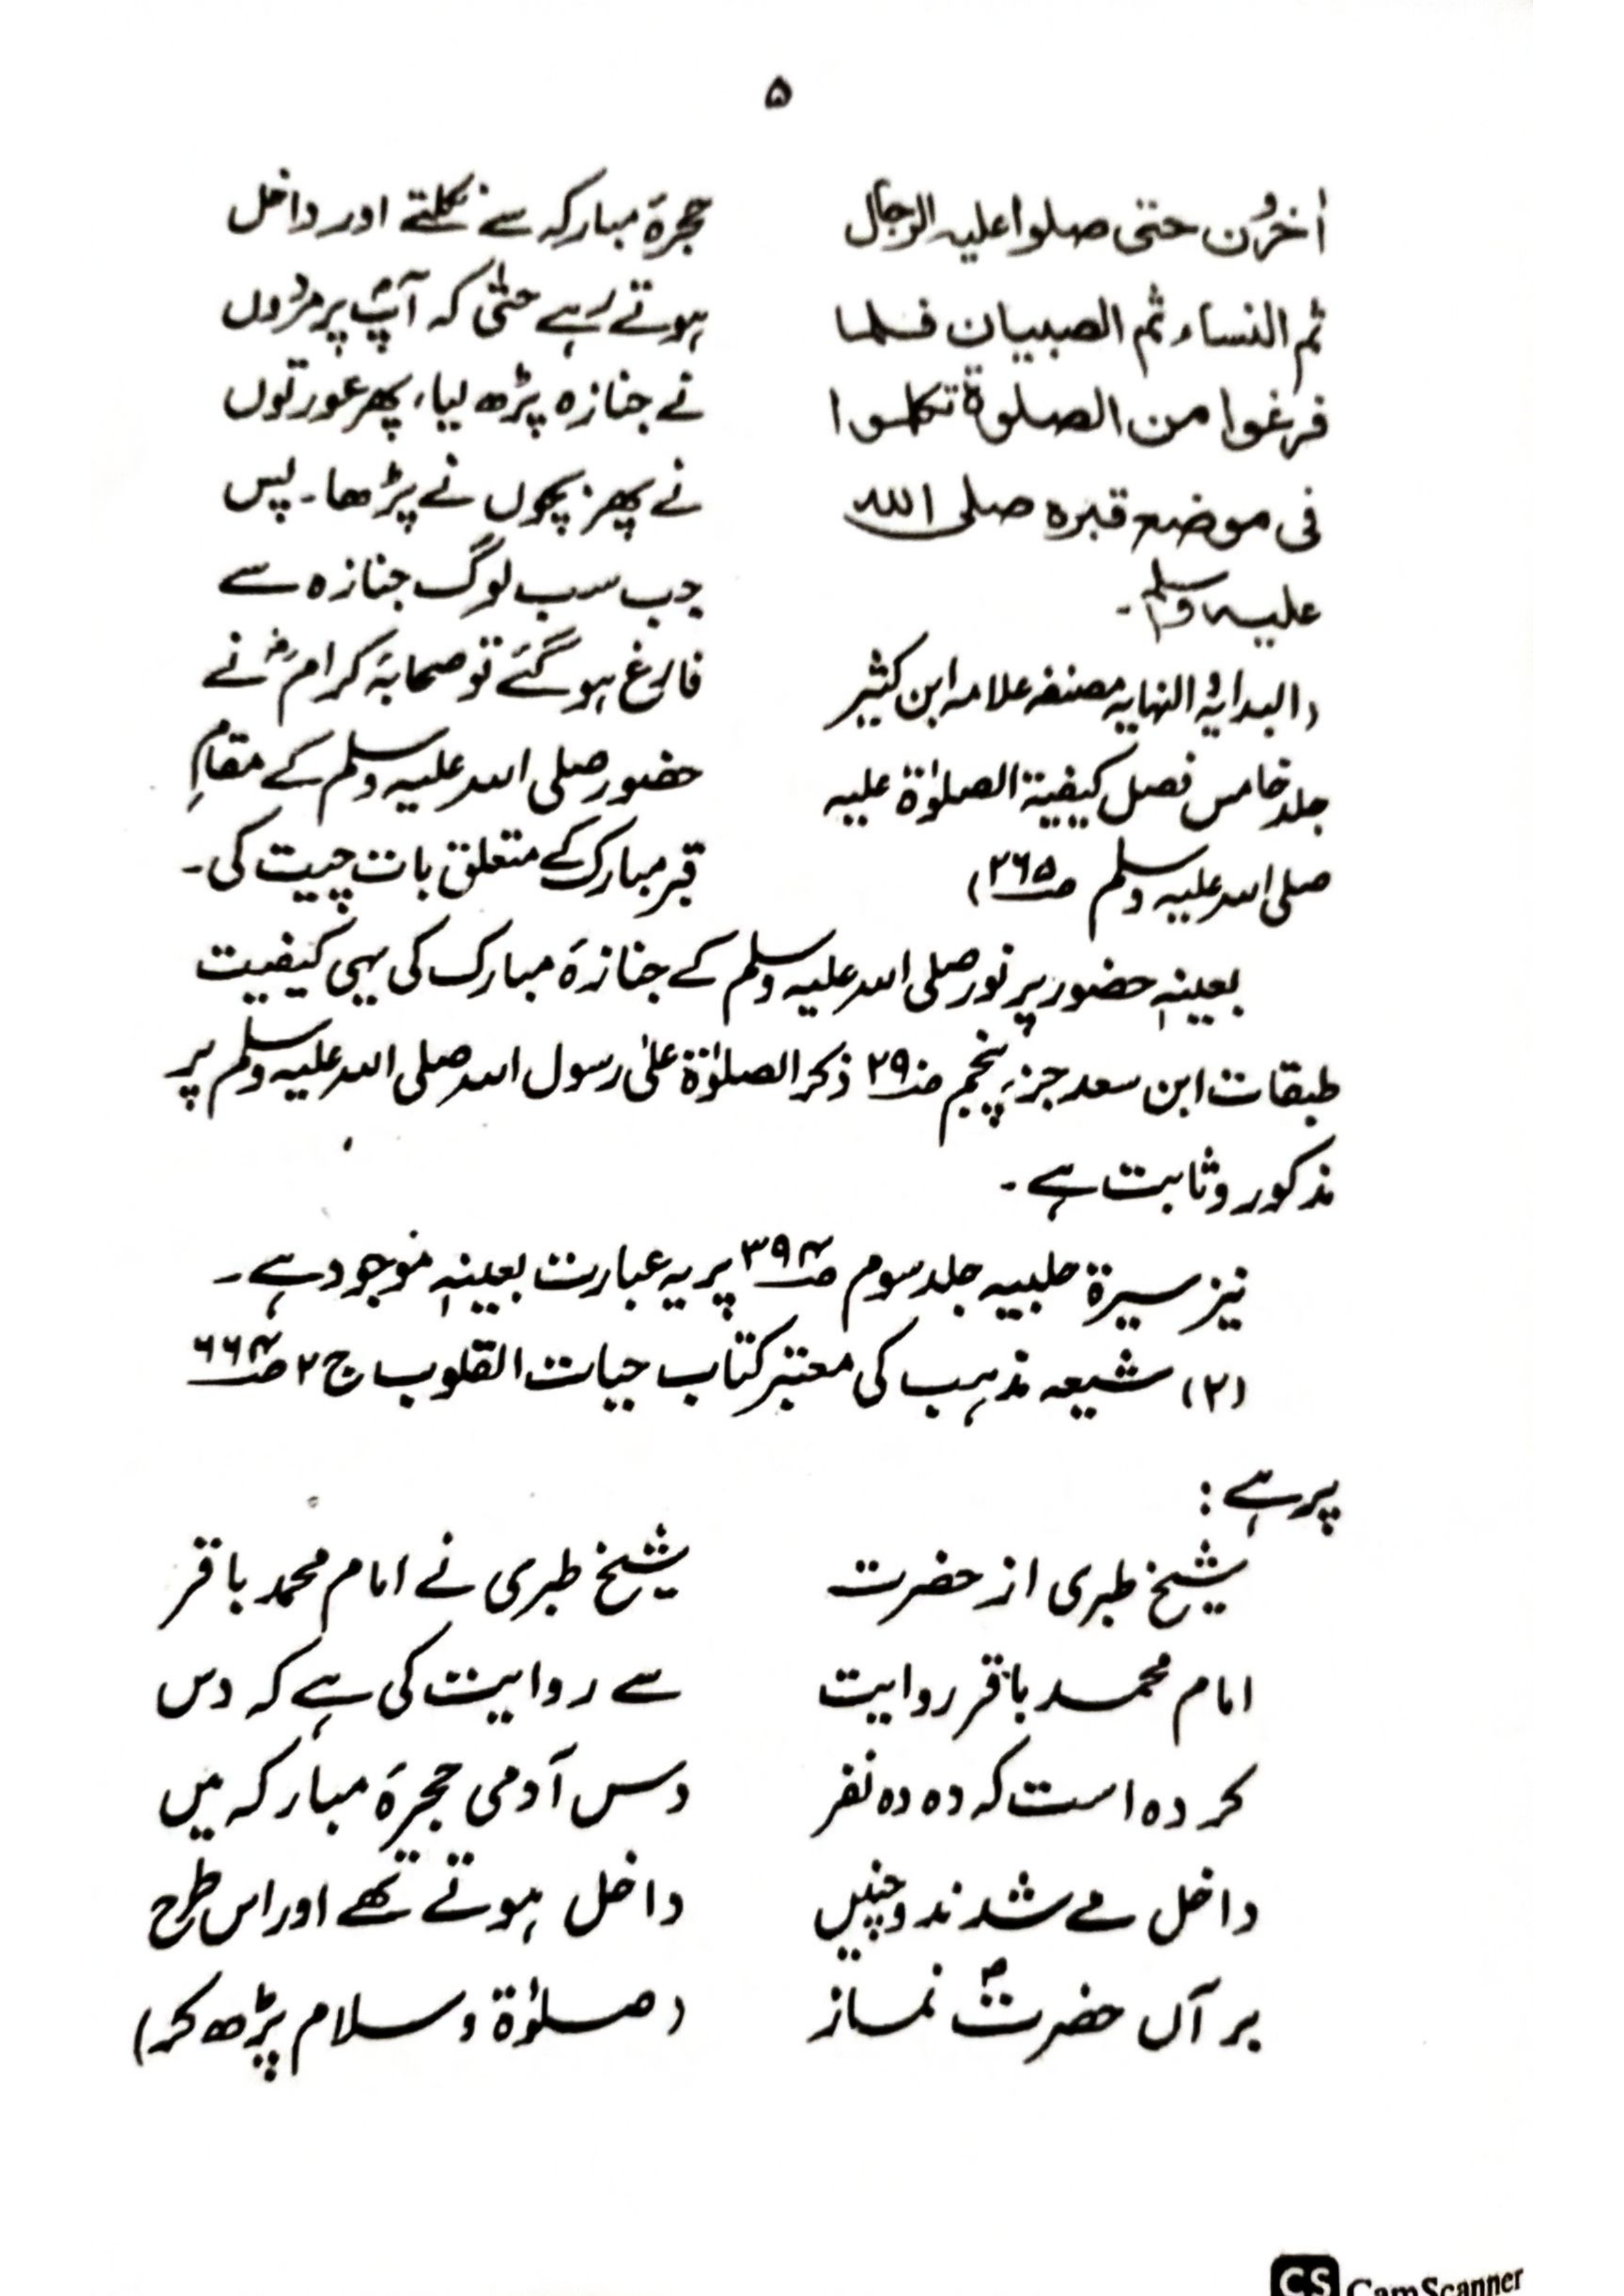 ۵
اٰخرُون حتی صلوا علیہ الرجال
ثم النساء ثم الصبیان فلما
فرغوا من الصلوۃ تکلموا
فی موضع قبرہ صلی اللہ
علیہ وسلم ۔
(البدایہ و النہایہ مصنفہ علامہ ابن کثیر
جلد خامس فصل کیفیۃ الصلوٰۃ علیہ
صلی اللہ علیہ وسلم صـ ۲۶۵)
حجرۂ مبارکہ سے نکلتے اور داخل
ہوتے رہے حتیٰ کہ آپؐ پر مردوں
نے جنازہ پڑھ لیا، پھر عورتوں
نے پھر بچوں نے پڑھا۔ پس
جب سب لوگ جنازہ سے
فارغ ہو گئے تو صحابۂ کرامؓ نے
حضور صلی اللہ علیہ وسلم کے مقامِ
قبر مبارک کے متعلق بات چیت کی۔
بعینہٖ حضور پر نور صلی اللہ علیہ وسلم کے جنازۂ مبارک کی یہی کیفیت
طبقات ابن سعد جزء پنجم صـ ۲۹ ذکر الصلوٰۃ علیٰ رسول اللہ صلی اللہ علیہ وسلم پر
مذکور و ثابت ہے ۔
نیز سیرۃ حلبیہ جلد سوم صـ ۳۹۴ پر یہ عبارت بعینہٖ موجود ہے ۔
(۲) شیعہ مذہب کی معتبر کتاب حیات القلوب ج ۲ صـ ۶۶۴
پر ہے :
شیخ طبری از حضرت
امام محمد باقر روایت
کردہ است کہ دہ دہ نفر
داخل مے شدند و چنیں
بر آں حضرتؐ نماز
شیخ طبری نے امام محمد باقر
سے روایت کی ہے کہ دس
دس آدمی حجرۂ مبارکہ میں
داخل ہوتے تھے اور اس طرح
(صلوٰۃ و سلام پڑھ کر)
CS CamScanner